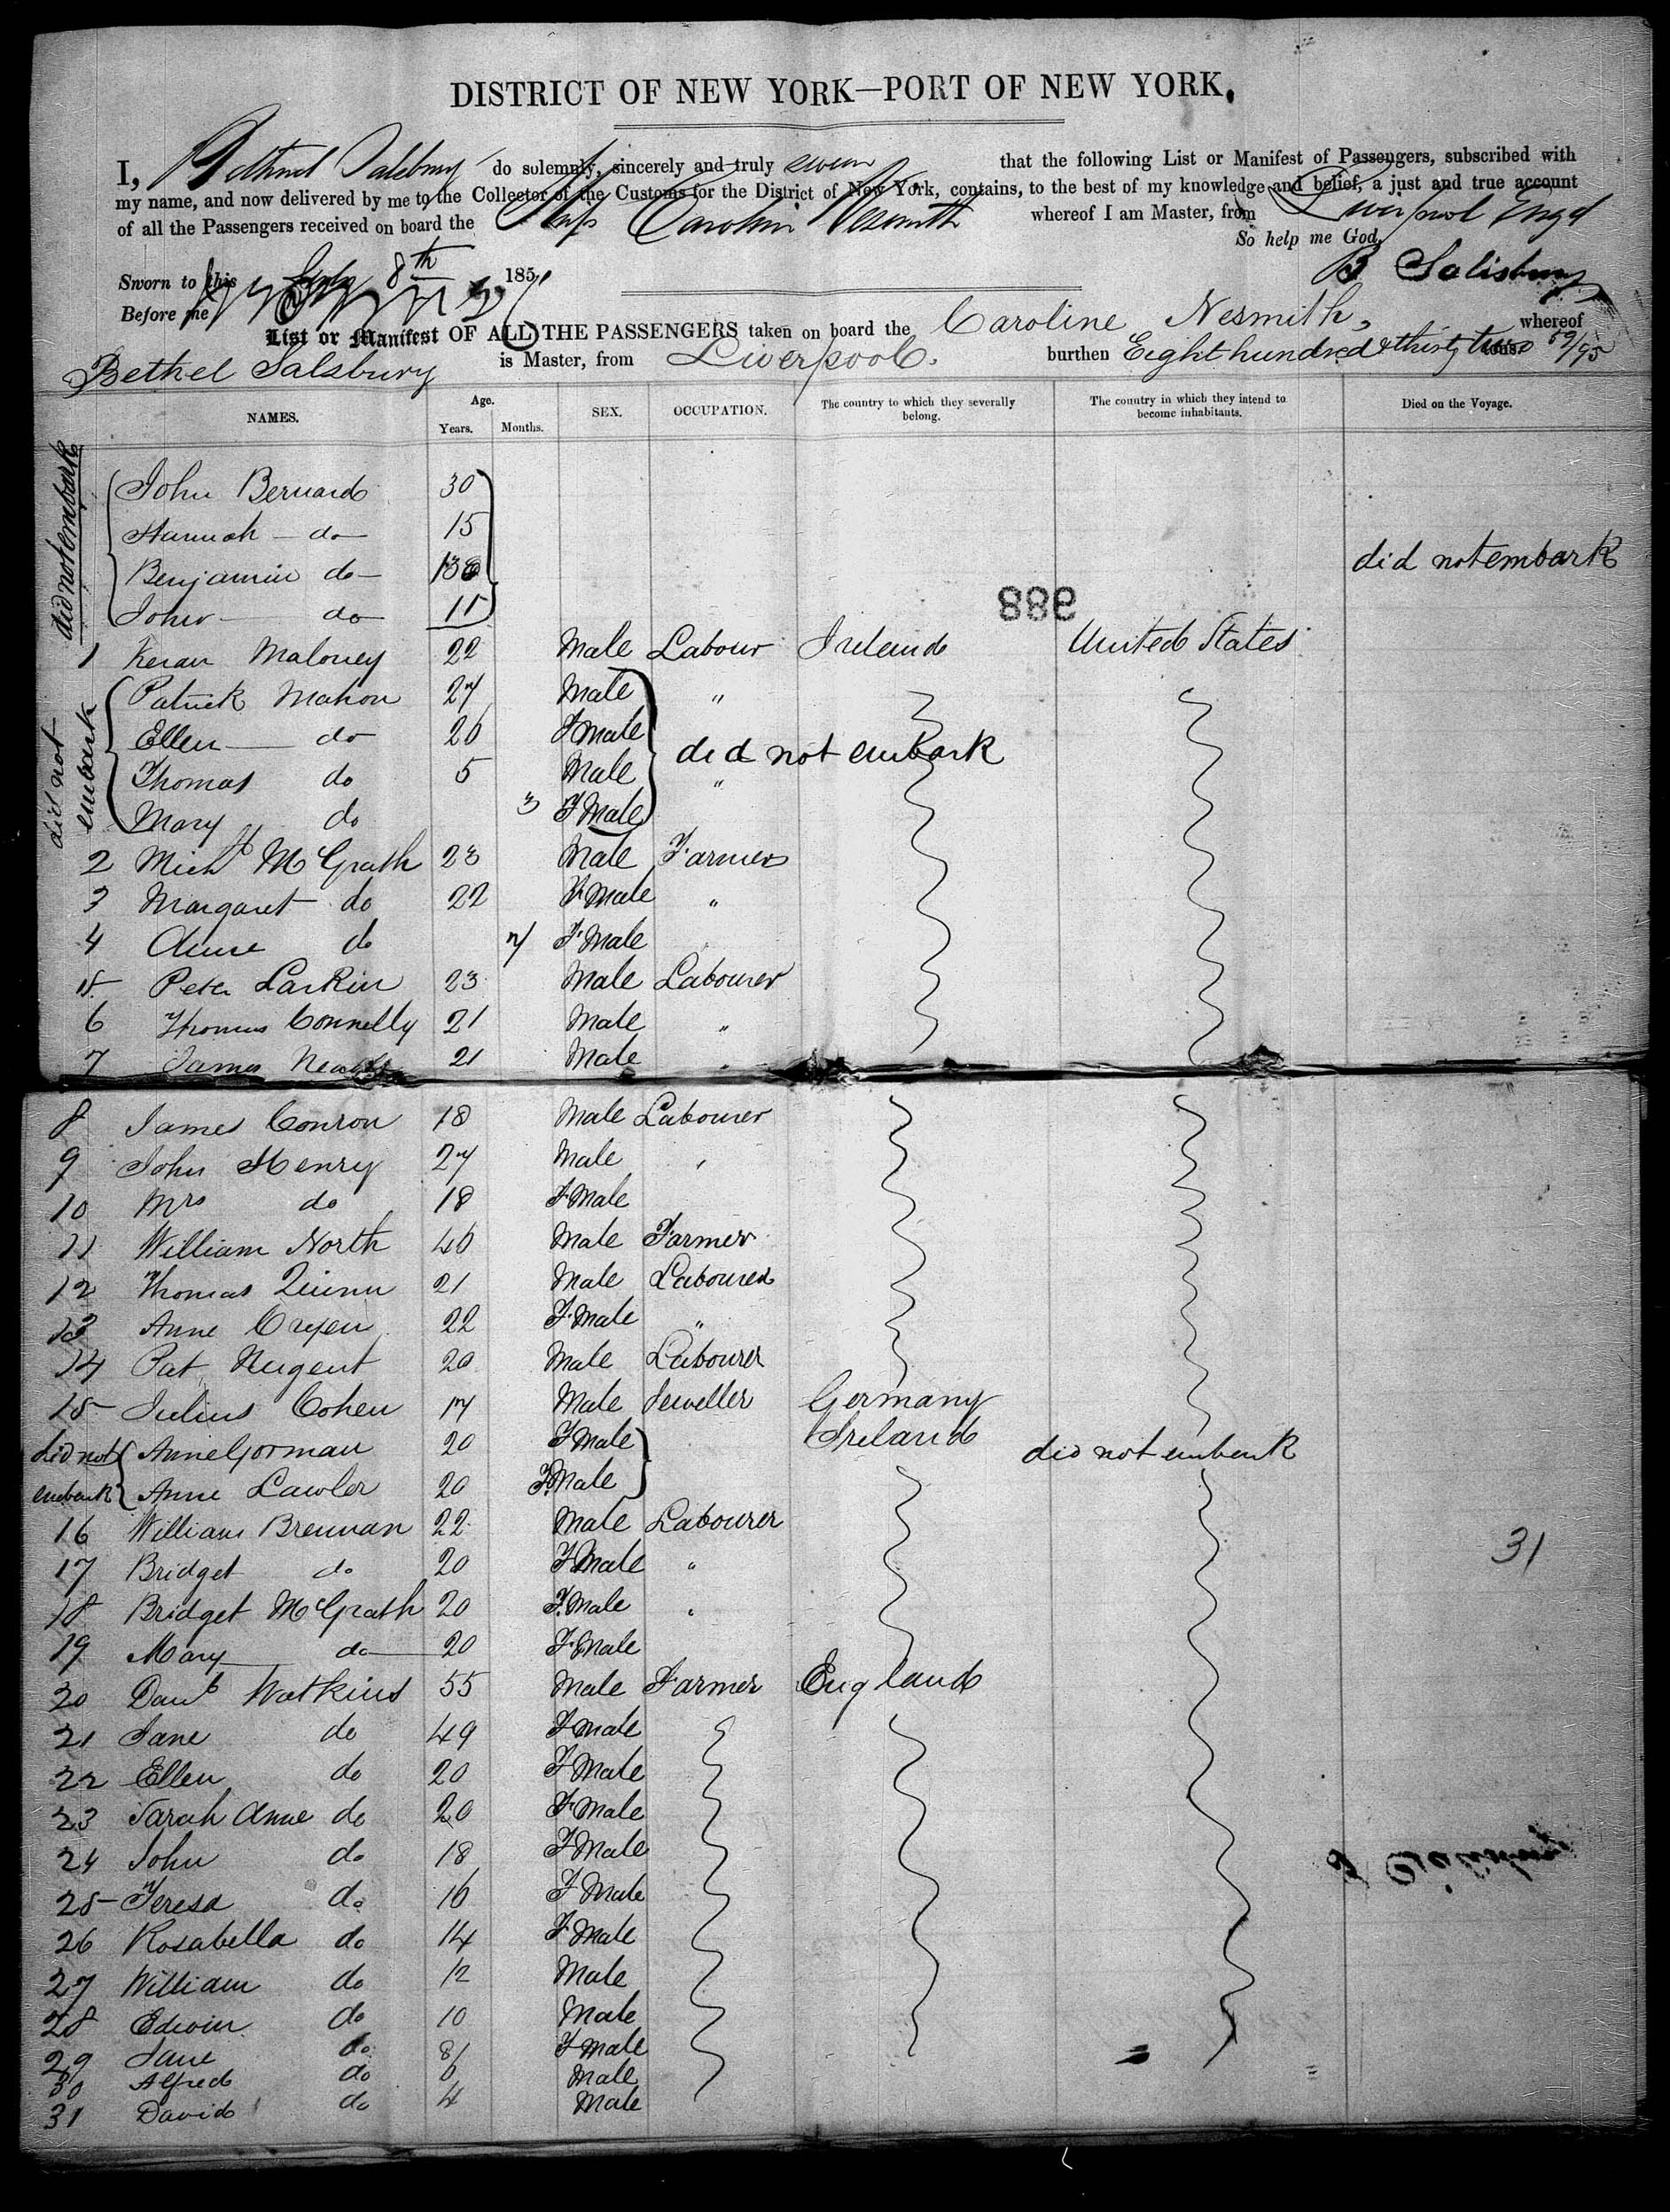 DISTRICT OF NEW YORK—PORT OF NEW YORK.
I, Bethuel Salsbury do solemnly, sincerely and truly swear that the following List or Manifest of Passengers, subscribed with
my name, and now delivered by me to the Collector of the Customs for the District of New York, contains, to the best of my knowledge and belief, a just and true account
of all the Passengers received on board the Ship Carolin Nesmith whereof I am Master, from Liverpool Engd
So help me God,
Sworn to this July 8th 185
B Salisbury
Before me
List or Manifest OF ALL THE PASSENGERS taken on board the Caroline Nesmith, whereof
Bethel Salsbury is Master, from Liverpool. burthen Eight hundred & thirty two tons. 59/95
NAMES. Age. Years. Months. SEX. OCCUPATION. The country to which they severally belong. The country in which they intend to become inhabitants. Died on the Voyage.
did not embark
John Bernard 30
Hannah do 15
Benjamin do 13 did not embark
John do 11
886
1 Keran Maloney 22 Male Labour Ireland United States
did not embark
Patrick Mahon 27 Male "
Ellen do 26 F Male
did not embark
Thomas do 5 Male "
Mary do 3 F Male
2 Michl McGrath 23 Male Farmer
3 Margaret do 22 F Male "
4 Anne do 7 F Male
5 Peter Larkin 23 Male Labourer
6 Thomas Connelly 21 Male "
7 James 21 Male "
8 James Conron 18 Male Labourer
9 John Henry 27 Male "
10 Mrs do 18 F Male
11 William North 46 Male Farmer
12 Thomas Quinn 21 Male Labourer
13 Anne Cregen 22 F Male "
14 Pat Nugent 20 Male Labourer
15 Julius Cohen 17 Male Jeweller Germany
did not embark
Anne Gorman 20 F Male Ireland did not embark
Anne Lawler 20 F. Male
16 William Brennan 22 Male Labourer
17 Bridget do 20 F Male "
31
18 Bridget McGrath 20 F. Male "
19 Mary do 20 F. Male
20 Danl Watkins 55 Male Farmer England
21 Jane do 49 F Male
22 Ellen do 20 F Male
23 Sarah Anne do 20 F Male
24 John do 18 F Male
25 Teresa do 16 F Male
26 Rosabella do 14 F Male
27 William do 12 Male
28 Edwin do 10 Male
29 Jane do 8 F Male
30 Alfred do 6 Male
31 David do 4 Male